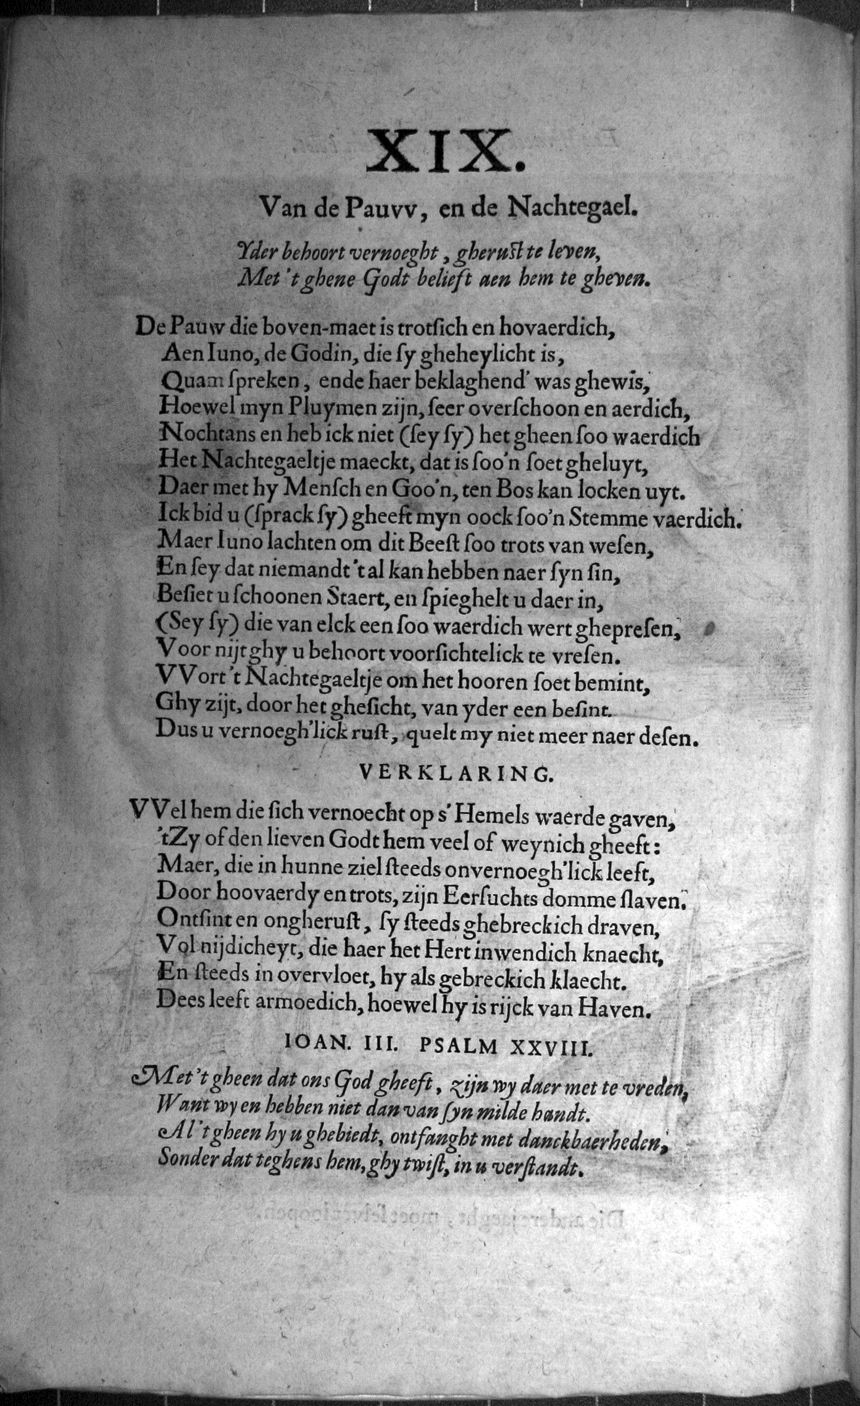 XIX.
Van de Pauvv, en de Nachtegael.
Yder behoort vernoeght, gherust te leven,
Met 't ghene Godt belieft aen hem te gheven.
De Pauw die boven-maet is trotſich en hovaerdich,
Aen Iuno, de Godin, die ſy gheheylicht is,
Quam ſpreken, ende haer beklaghend' was ghewis,
Hoewel myn Pluymen zijn, ſeer overſchoon en aerdich,
Nochtans en heb ick niet (ſey ſy) het gheen ſoo waerdich
Het Nachtegaeltje maeckt, dat is ſoo'n ſoet gheluyt,
Daer met hy Menſch en Goo'n, ten Bos kan locken uyt.
Ick bid u (ſprack ſy) gheeft myn oock ſoo'n Stemme vaerdich.
Maer Iuno lachten om dit Beeſt ſoo trots van weſen,
En ſey dat niemandt 't al kan hebben naer ſyn ſin,
Beſiet u ſchoonen Staert, en ſpieghelt u daer in,
(Sey ſy) die van elck een ſoo waerdich wert ghepreſen,
Voor nijt ghy u behoort voorſichtelick te vreſen.
VVort 't Nachtegaeltje om het hooren ſoet bemint,
Ghy zijt, door het gheſicht, van yder een beſint.
Dus u vernoegh'lick ruſt, quelt my niet meer naer deſen.
VERKLARING.
VVel hem die ſich vernoecht op s'Hemels waerde gaven,
'tZy of den lieven Godt hem veel of weynich gheeft:
Maer, die in hunne ziel ſteeds onvernoegh'lick leeft,
Door hoovaerdy en trots, zijn Eerſuchts domme ſlaven.
Ontſint en ongheruſt, ſy ſteeds ghebreckich draven,
Vol nijdicheyt, die haer het Hert inwendich knaecht,
En ſteeds in overvloet, hy als gebreckich klaecht.
Dees leeft armoedich, hoewel hy is rijck van Haven.
IOAN. III. PSALM XXVIII.
Met 't gheen dat ons God gheeft, zijn wy daer met te vreden,
Want wy en hebben niet dan van ſyn milde handt.
Al 't gheen hy u ghebiedt, ontfanght met danckbaerheden,
Sonder dat teghens hem, ghy twiſt, in u verſtandt.